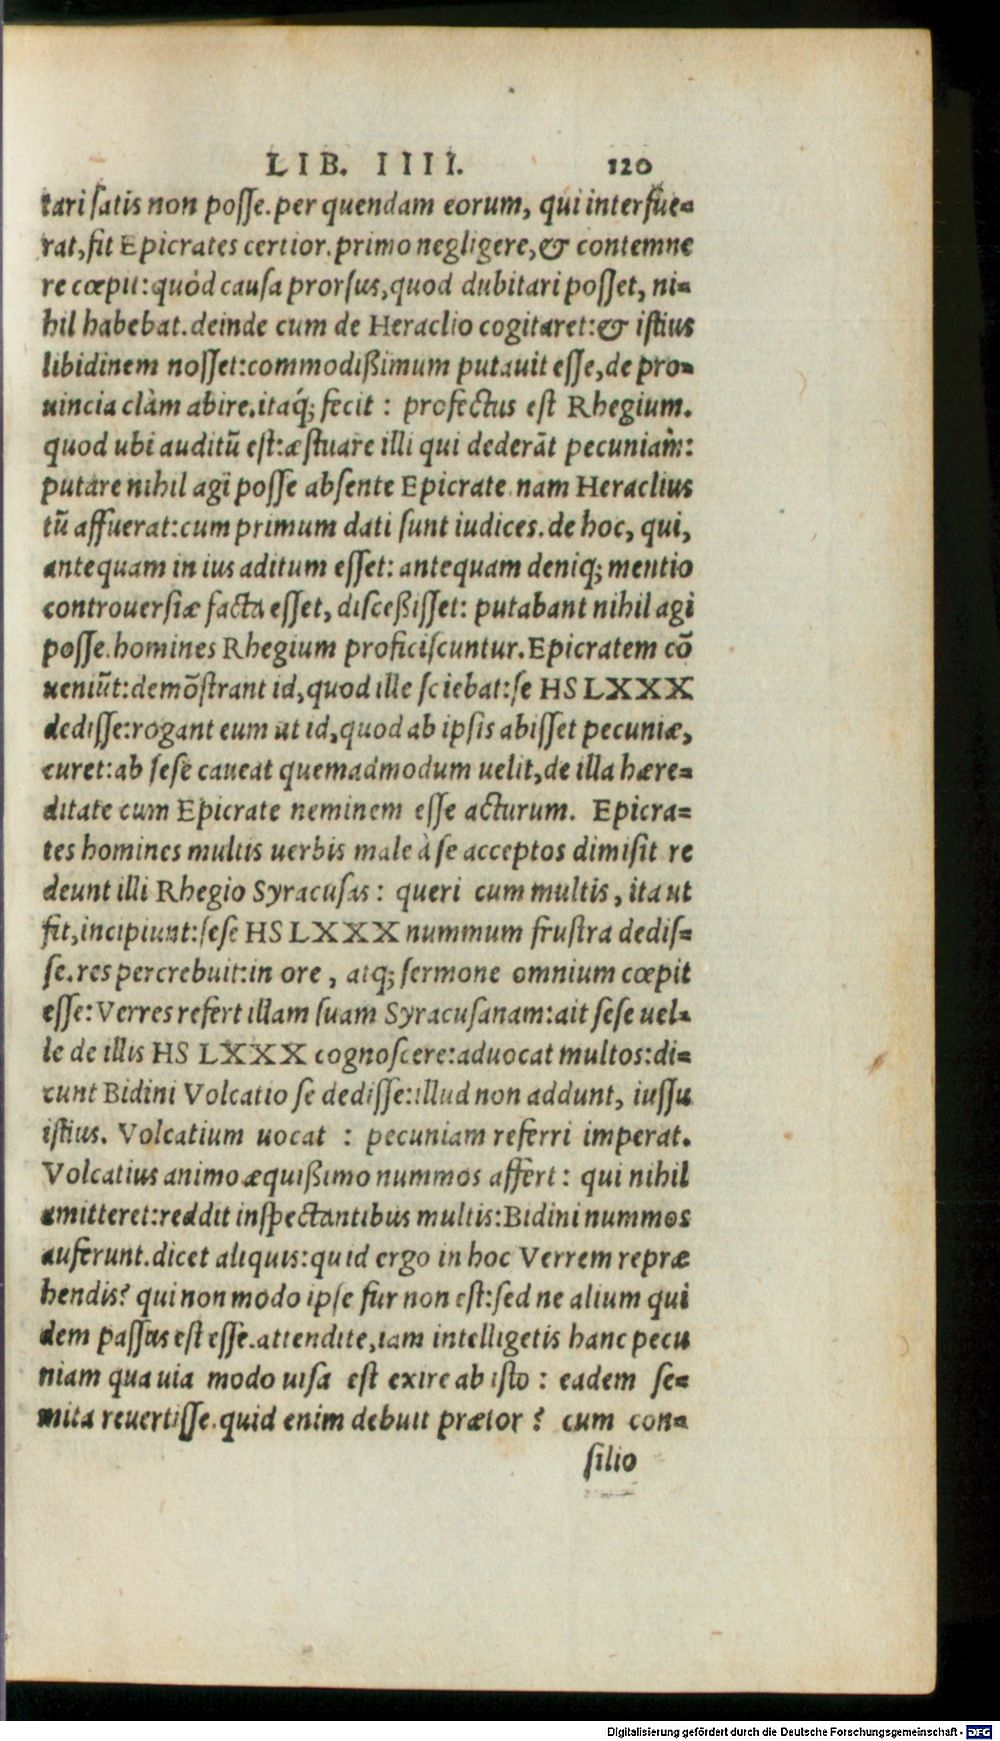 LIB. IIII. 120
tari satis non posse. per quendam eorum, qui interfue=
rat, fit Epicrates certior. primo negligere, & contemne
re cœpit: quòd causa prorsus, quod dubitari posset, ni=
hil habebat. deinde cum de Heraclio cogitaret: & istius
libidinem nosset: commodißimum putauit esse, de pro=
uincia clàm abire. itaq́; fecit : profectus est Rhegium.
quod ubi auditũ est: æstuare illi qui dederãt pecuniam:
putare nihil agi posse absente Epicrate. nam Heraclius
tũ affuerat: cum primum dati sunt iudices. de hoc, qui,
antequam in ius aditum esset: antequam deniq; mentio
controuersiæ facta esset, disceßisset: putabant nihil agi
posse. homines Rhegium proficiscuntur. Epicratem cõ
ueniũt: demõstrant id, quod ille sciebat: se HS LXXX
dedisse: rogant eum ut id, quod ab ipsis abisset pecuniæ,
curet: ab sese caueat quemadmodum uelit, de illa hære=
ditate cum Epicrate neminem esse acturum. Epicra=
tes homines multis uerbis male à se acceptos dimisit re
deunt illi Rhegio Syracusas : queri cum multis, ita ut
fit, incipiunt: sese HS LXXX nummum frustra dedis=
se. res percrebuit: in ore , atq; sermone omnium cœpit
esse: Verres refert illam suam Syracusanam: ait sese uel=
le de illis HS LXXX cognoscere: aduocat multos: di=
cunt Bidini Volcatio se dedisse: illud non addunt, iussu
istius. Volcatium uocat : pecuniam referri imperat.
Volcatius animo æquißimo nummos affert : qui nihil
amitteret: reddit inspectantibus multis: Bidini nummos
auferunt. dicet aliquis: quid ergo in hoc Verrem repræ
hendis? qui non modo ipse fur non est: sed ne alium qui
dem passus est esse. attendite, iam intelligetis hanc pecu
niam qua uia modo uisa est exire ab isto : eadem se=
mita reuertisse. quid enim debuit prætor ? cum con=
silio
Digitalisierung gefördert durch die Deutsche Forschungsgemeinschaft - DFG